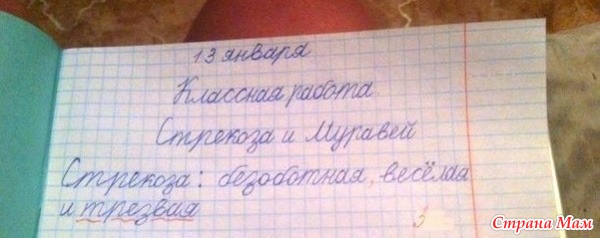 13 января
Классная работа.
Стрекоза и Муравей
Стрекоза: безоботная, весёлая
и трезвая
3
Страна Мам